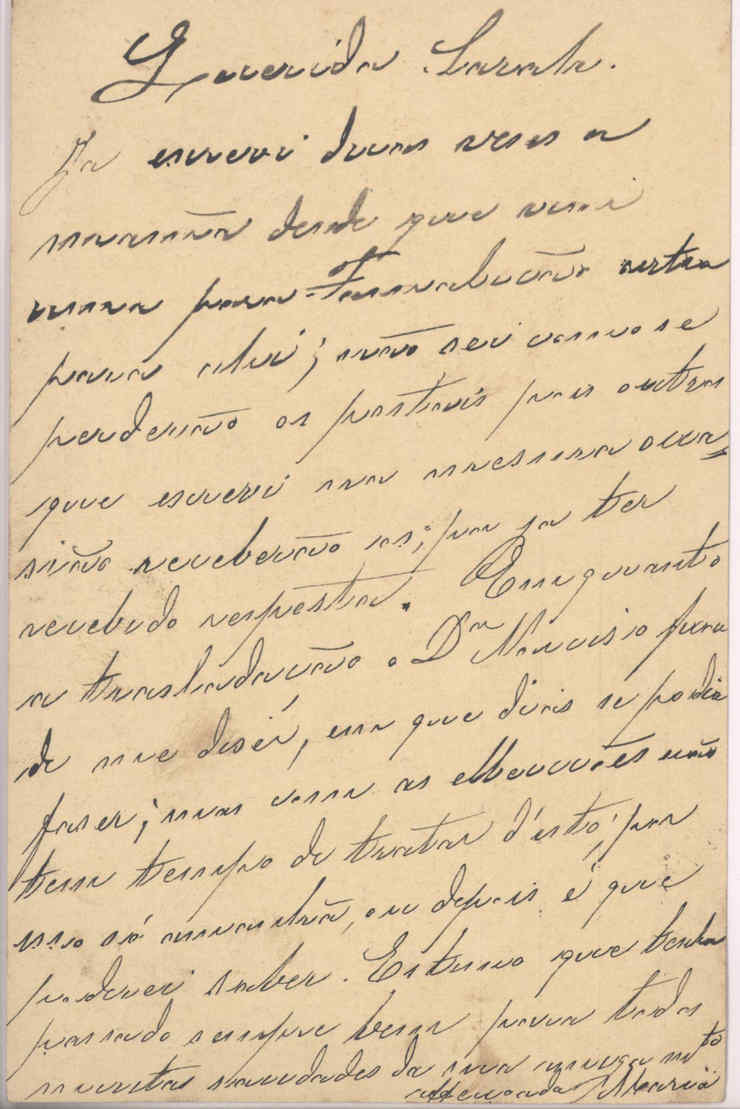 Querida Sarah.
Ja escrevi duas veses a
mamãa desde que vim
uma para Tamalicão outra
para ahi; não sei como se
perderão os postais pois outros
que escrevi na mesma oca=
sião receberão os; por ja ter
recebido resposta. Emquanto
a trasladacão o Dr Narciso
de me diser, em que dias se podia
faser; mas com as elleicões não
tem tempo de tratar d'isto, por
isso só amanhã, ou depois é que
poderei saber. Estimo que tenha
passado sempre bem para todos
muitas saudades da sua amiga mto
affeicoada Maria